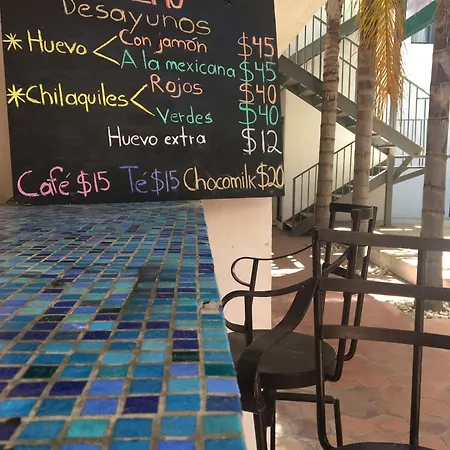 Desayunos
*Huevo < Con jamón $45
A la mexicana $45
*Chilaquiles < Rojos $40
Verdes $40
Huevo extra $12
Café $15 Té $15 Chocomilk $20